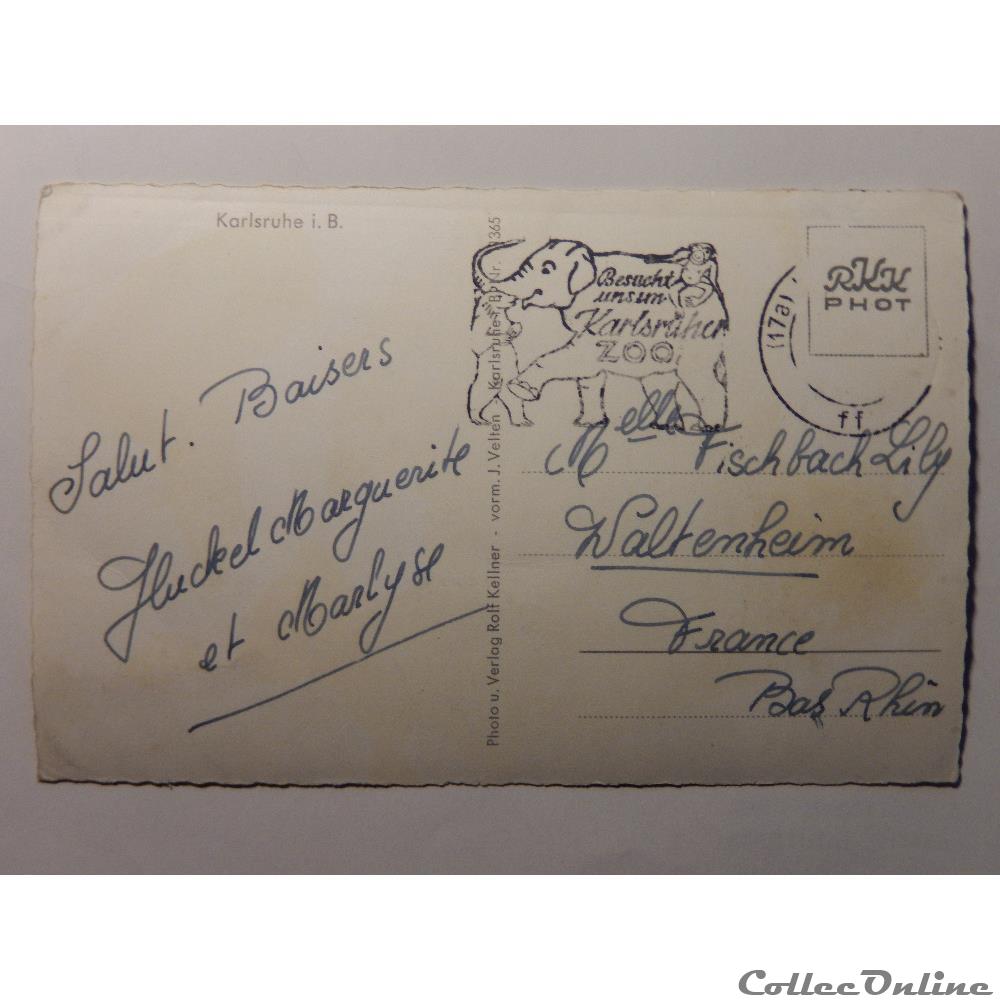 Karlsruhe i. B.
Salut. Baisers
Huckel Marguerite
et Marlyse
Photo u. Verlag Rolf Kellner - vorm. J. Velten - Karlsruhe i. B. Nr. 365
Besucht
uns im
Karlsruher
ZOO
(17a)
ff
RKK
PHOT
Melle Fischbach Lily
Waltenheim
France
Bas Rhin
CollecOnline